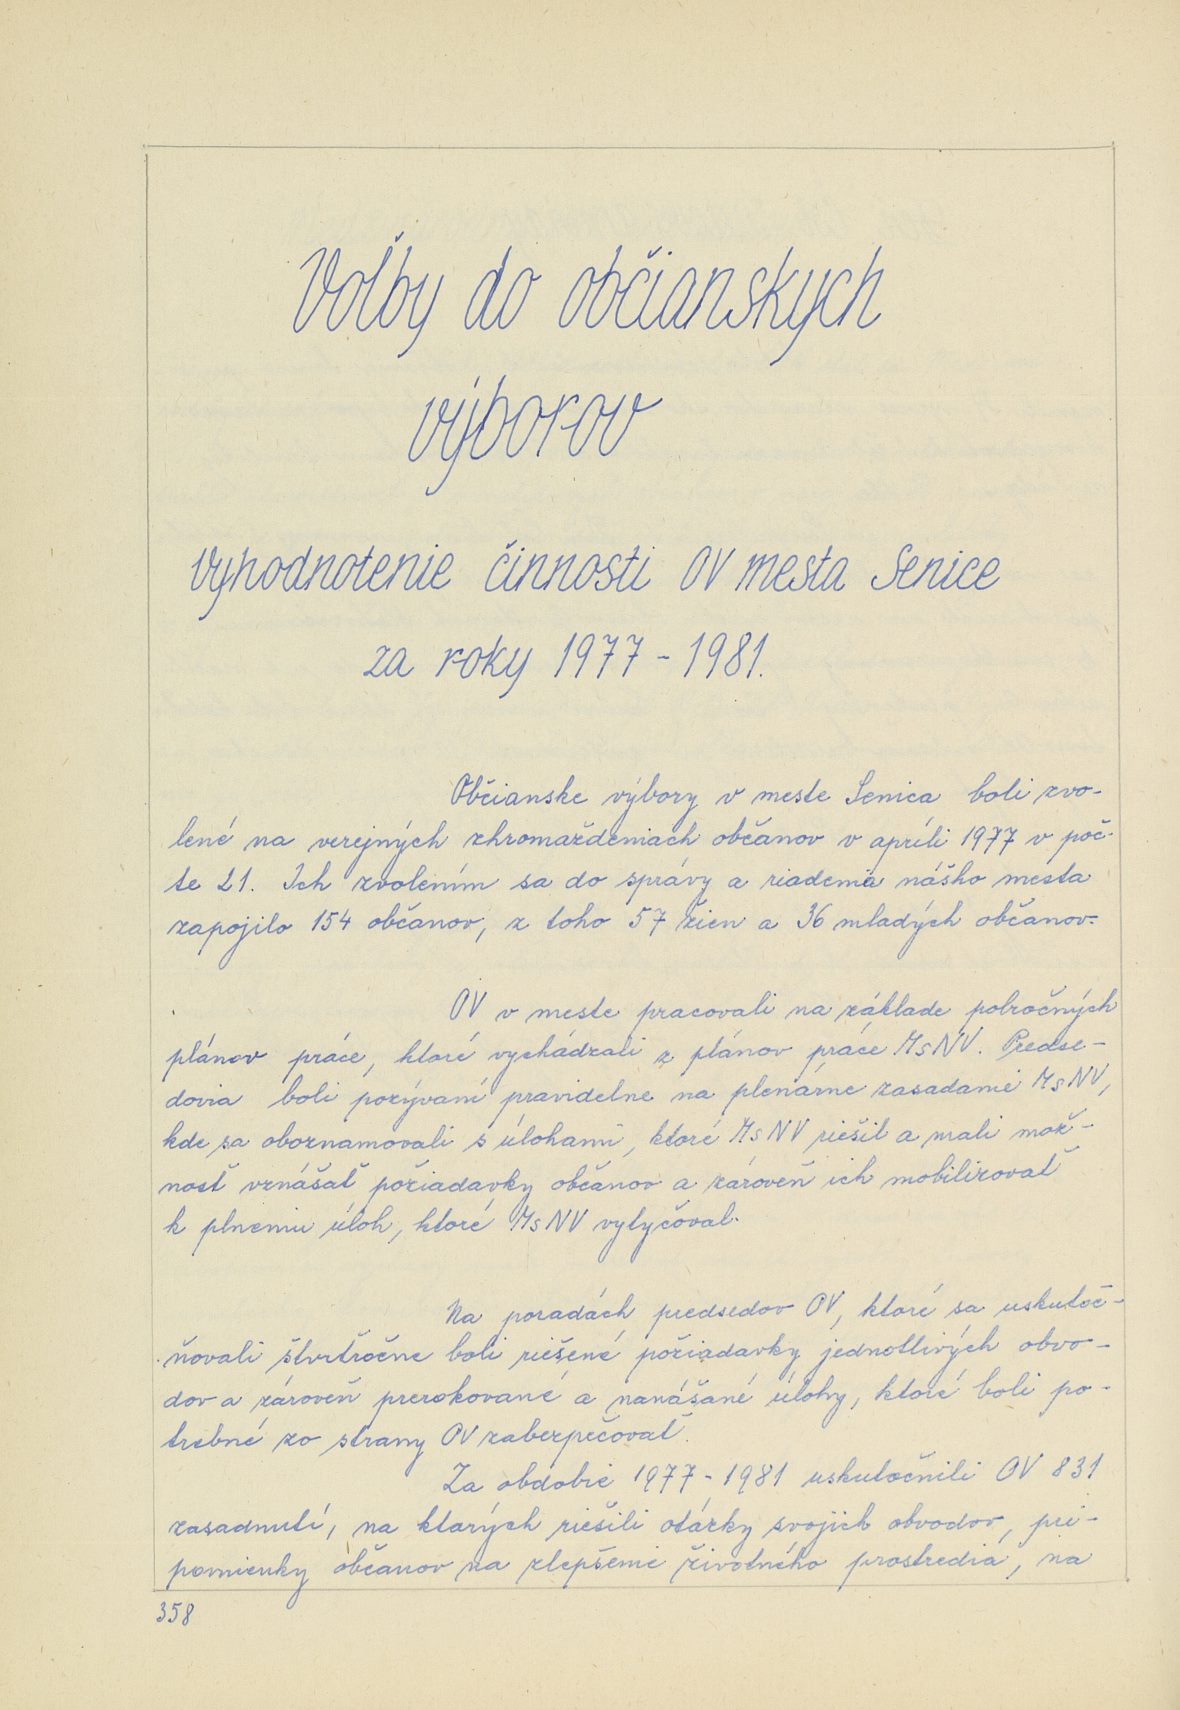 Voľby do občianskych
výborov
Vyhodnotenie činnosti OV mesta Senice
za roky 1977 - 1981.
Občianske výbory v meste Senica boli zvo-
lené na verejných zhromaždeniach občanov v apríli 1977 v poč-
te 21. Ich zvolením sa do správy a riadenia nášho mesta
zapojilo 154 občanov, z toho 57 žien a 36 mladých občanov.
OV v meste pracovali na základe polročných
plánov práce, ktoré vychádzali z plánov práce MsNV. Predse-
dovia boli pozývaní pravidelne na plenárne zasadanie MsNV,
kde sa oboznamovali s úlohami, ktoré MsNV riešil a mali mož-
nosť vznášať požiadavky občanov a zároveň ich mobilizovať
k plneniu úloh, ktoré MsNV vytyčoval.
Na poradách predsedov OV, ktoré sa uskutoč-
ňovali štvrťročne boli riešené požiadavky jednotlivých obvo-
dov a zároveň prerokované a nanášané úlohy, ktoré boli po-
trebné zo strany OV zabezpečovať.
Za obdobie 1977 - 1981 uskutočnili OV 831
zasadnutí, na ktorých riešili otázky svojich obvodov, pri-
pomienky občanov na zlepšenie životného prostredia, na
358